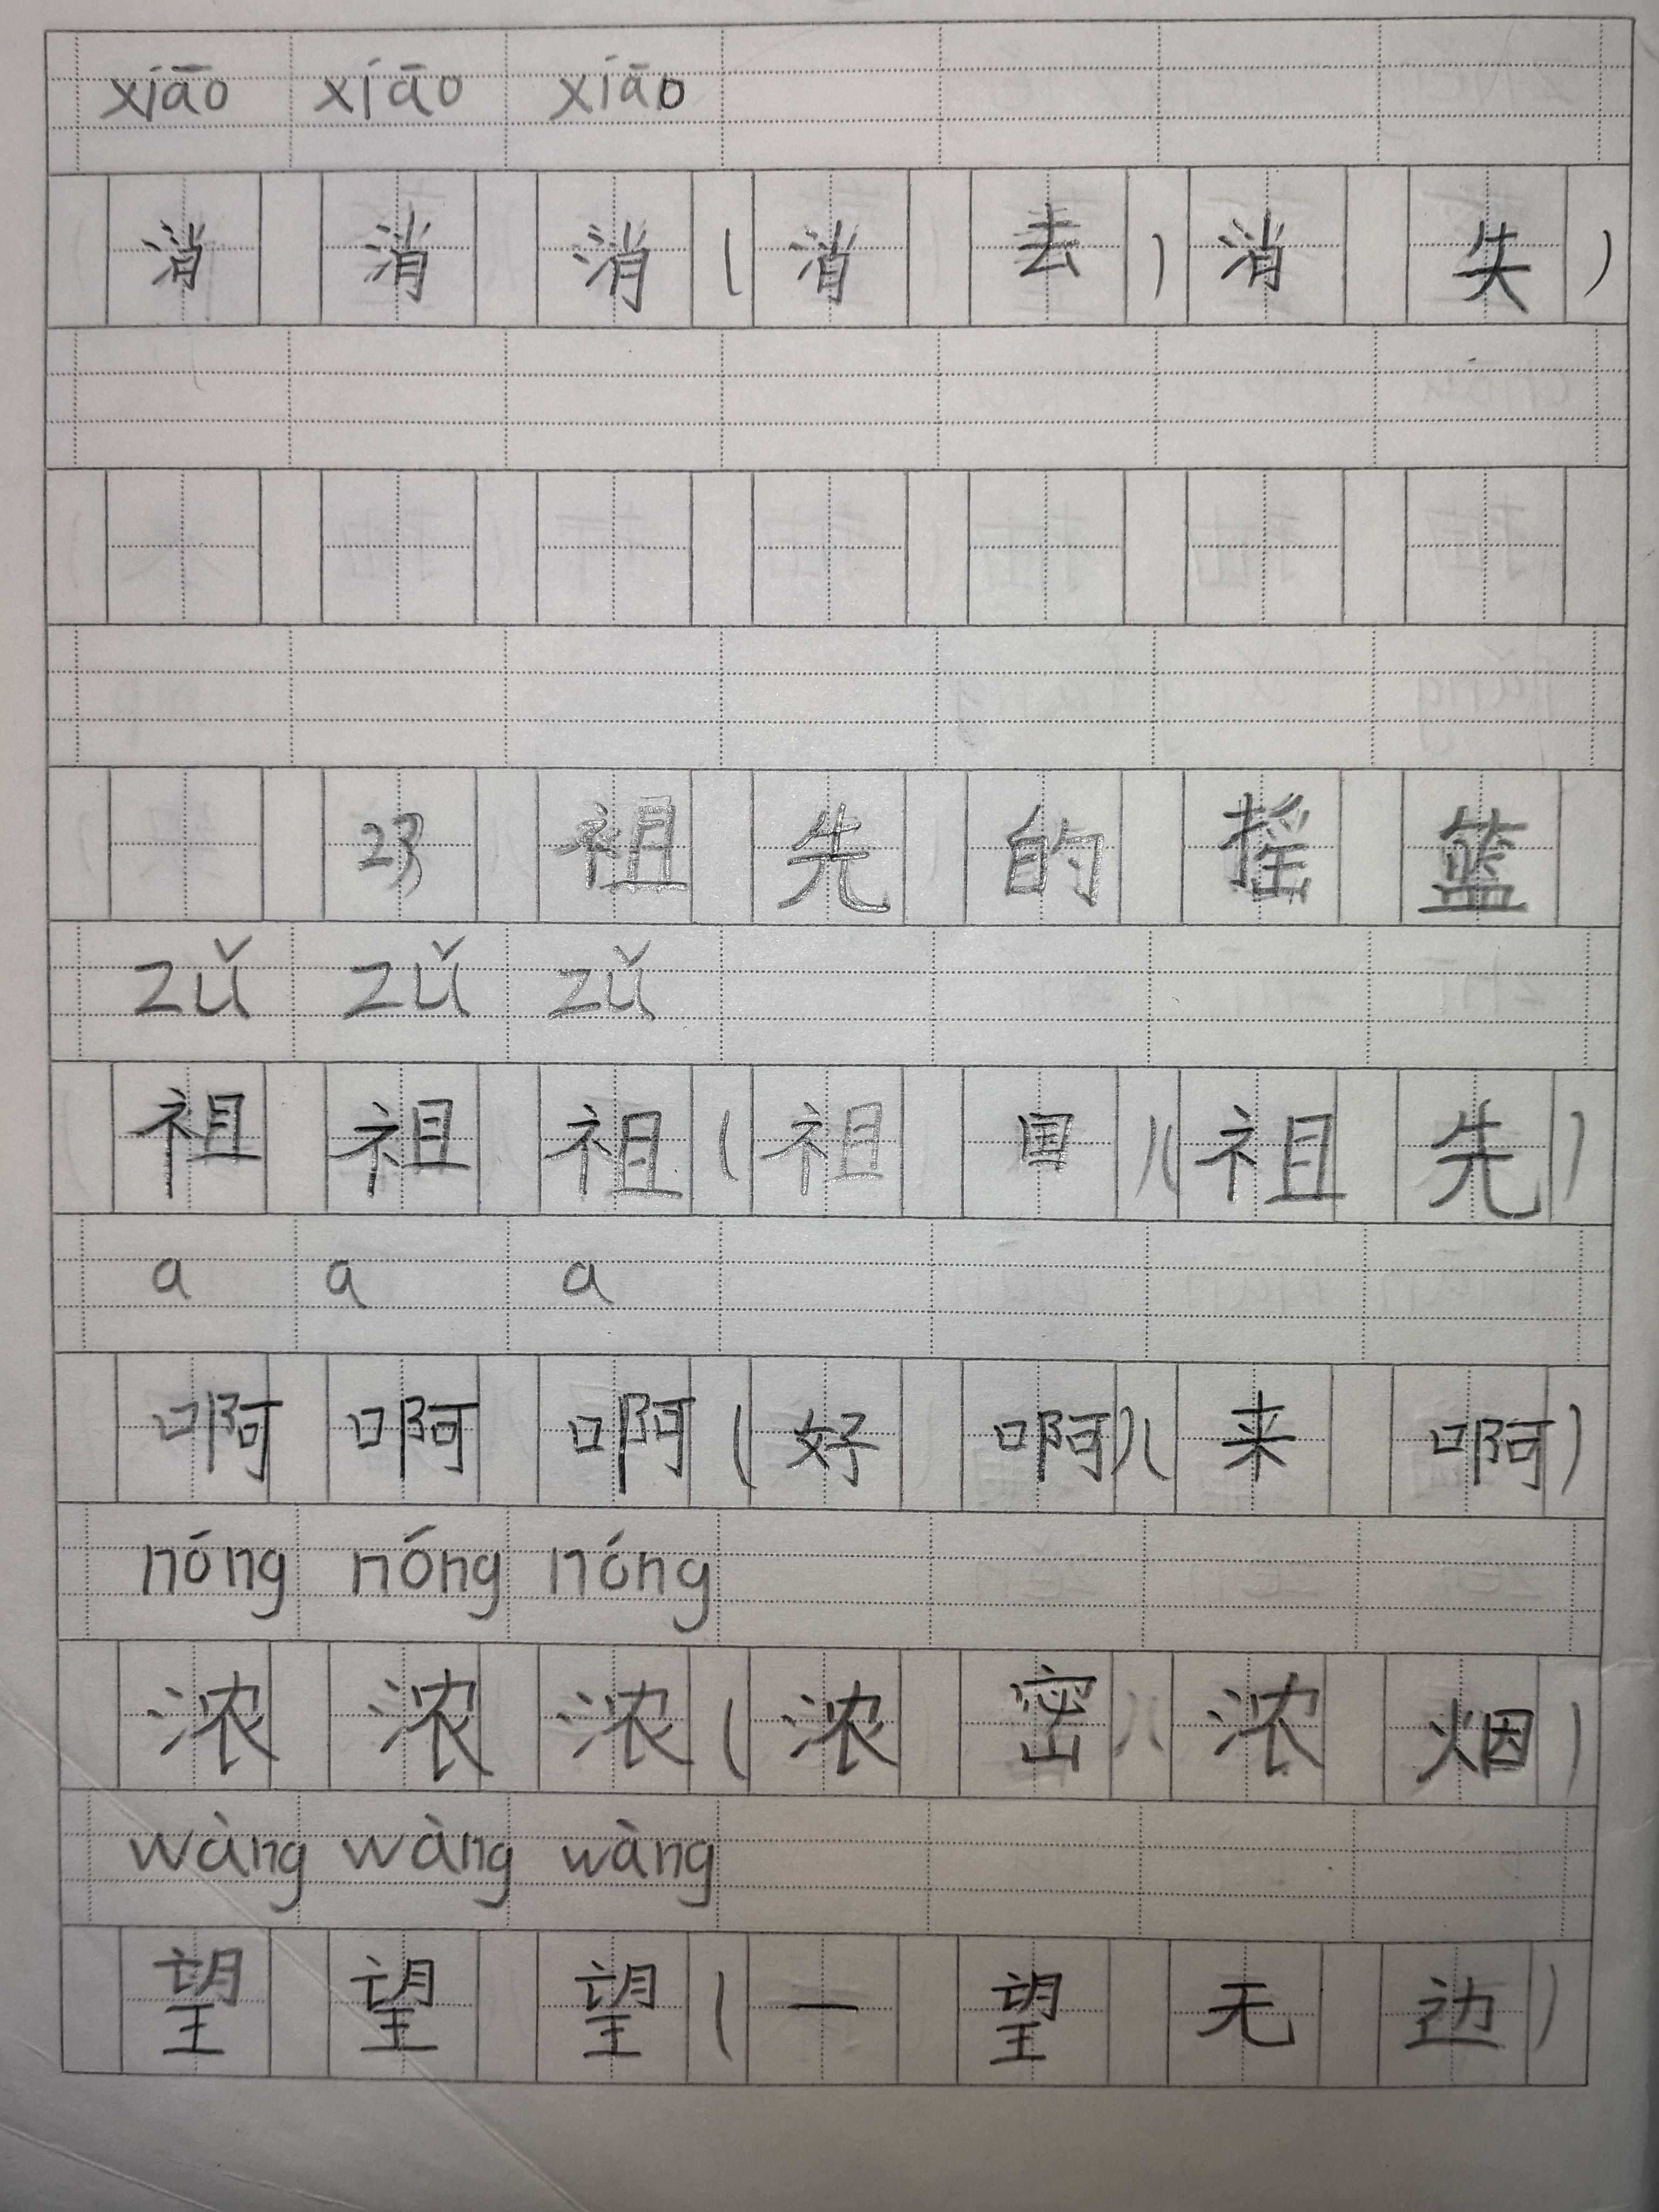 xiāo xiāo xiāo
消 消 消 ( 消 去 ) 消 失 )
23 祖 先 的 摇 篮
zǔ zǔ zǔ
祖 祖 祖 ( 祖 国 ) ( 祖 先 )
a a a
啊 啊 啊 ( 好 啊 ) ( 来 啊 )
nóng nóng nóng
浓 浓 浓 ( 浓 密 ) ( 浓 烟 )
wàng wàng wàng
望 望 望 ( 一 望 无 边 )